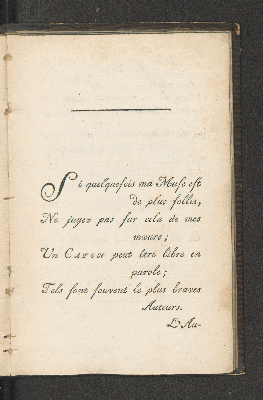 Si quelquefois ma Muse est
de plus folles,
Ne jugez pas sur cela de mes
mœurs;
Un CATON peut être libre en
parole;
Tels sont souvent le plus braves
Auteurs.
L'Au-